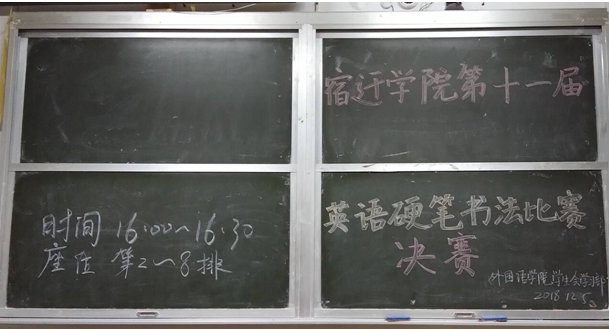 宿迁学院第十一届
英语硬笔书法比赛
决赛
外国语学院学生会学习部
2018.12.5
时间 16:00~16:30
座位 第2~8排